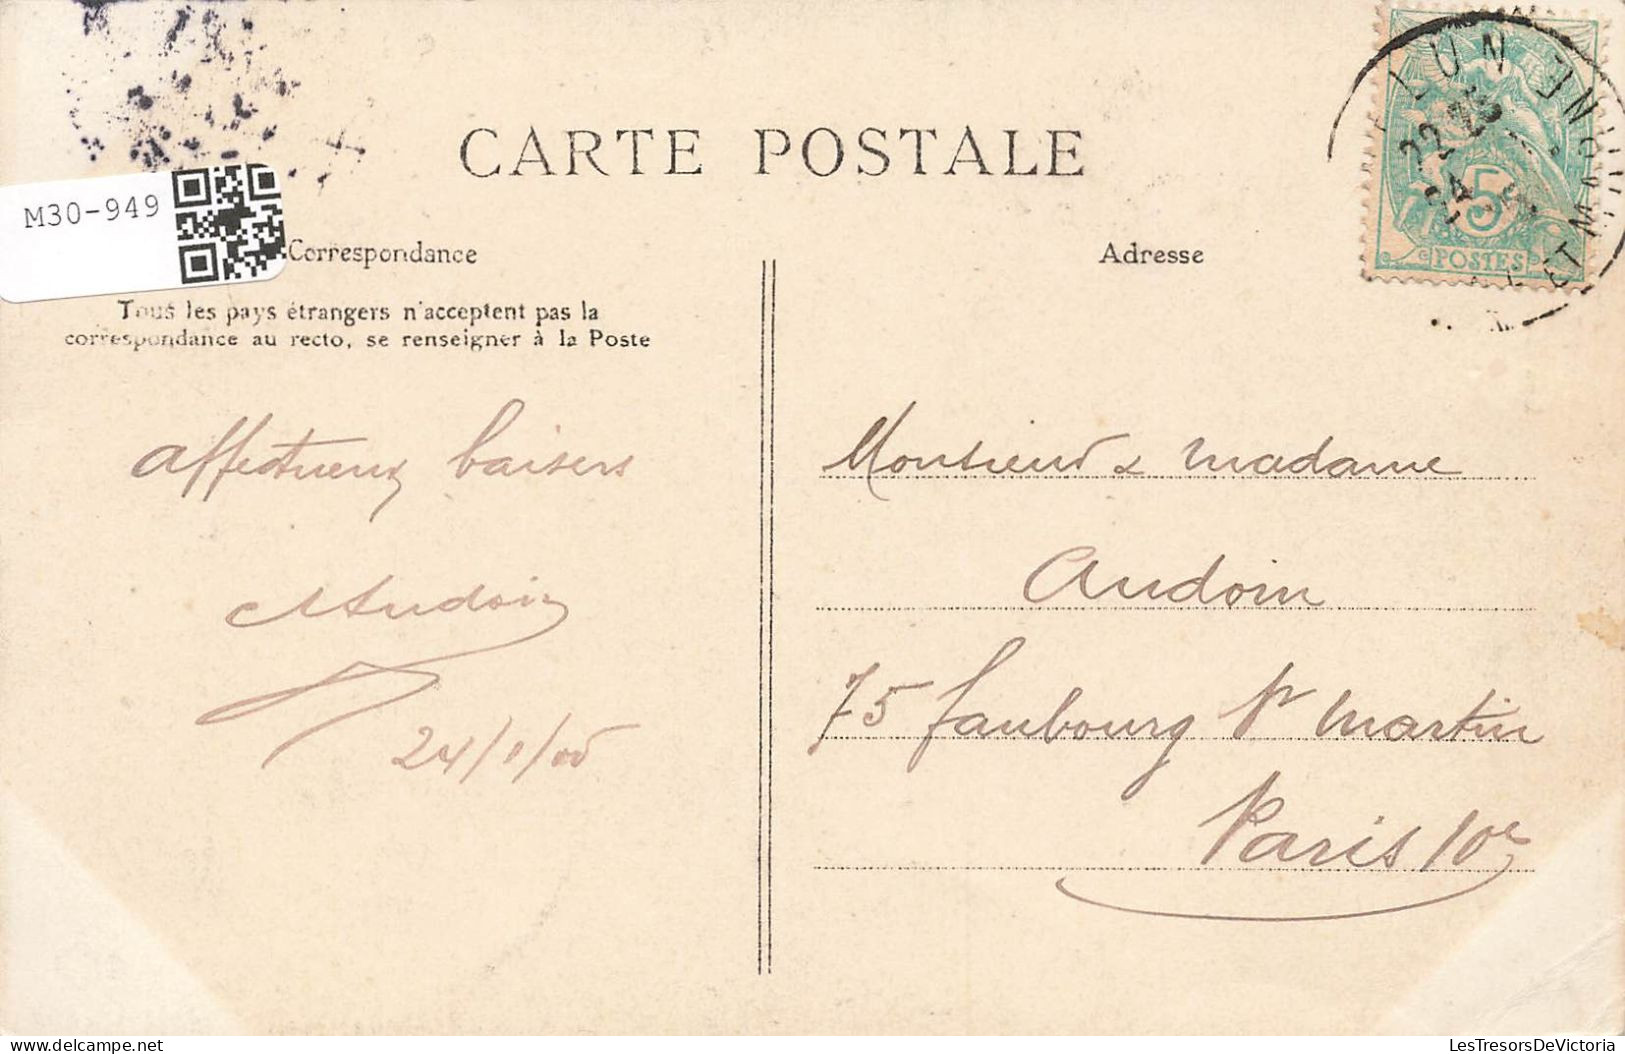 CARTE POSTALE
M30-949
Correspondance
Adresse
Tous les pays étrangers n'acceptent pas la
correspondance au recto, se renseigner à la Poste
affectueux baisers
Audoin
24/1/05
Monsieur & madame
Audoin
75 faubourg St Martin
Paris 10e
5
POSTES
ET MARNE
delcampe.net
LesTresorsDeVictoria